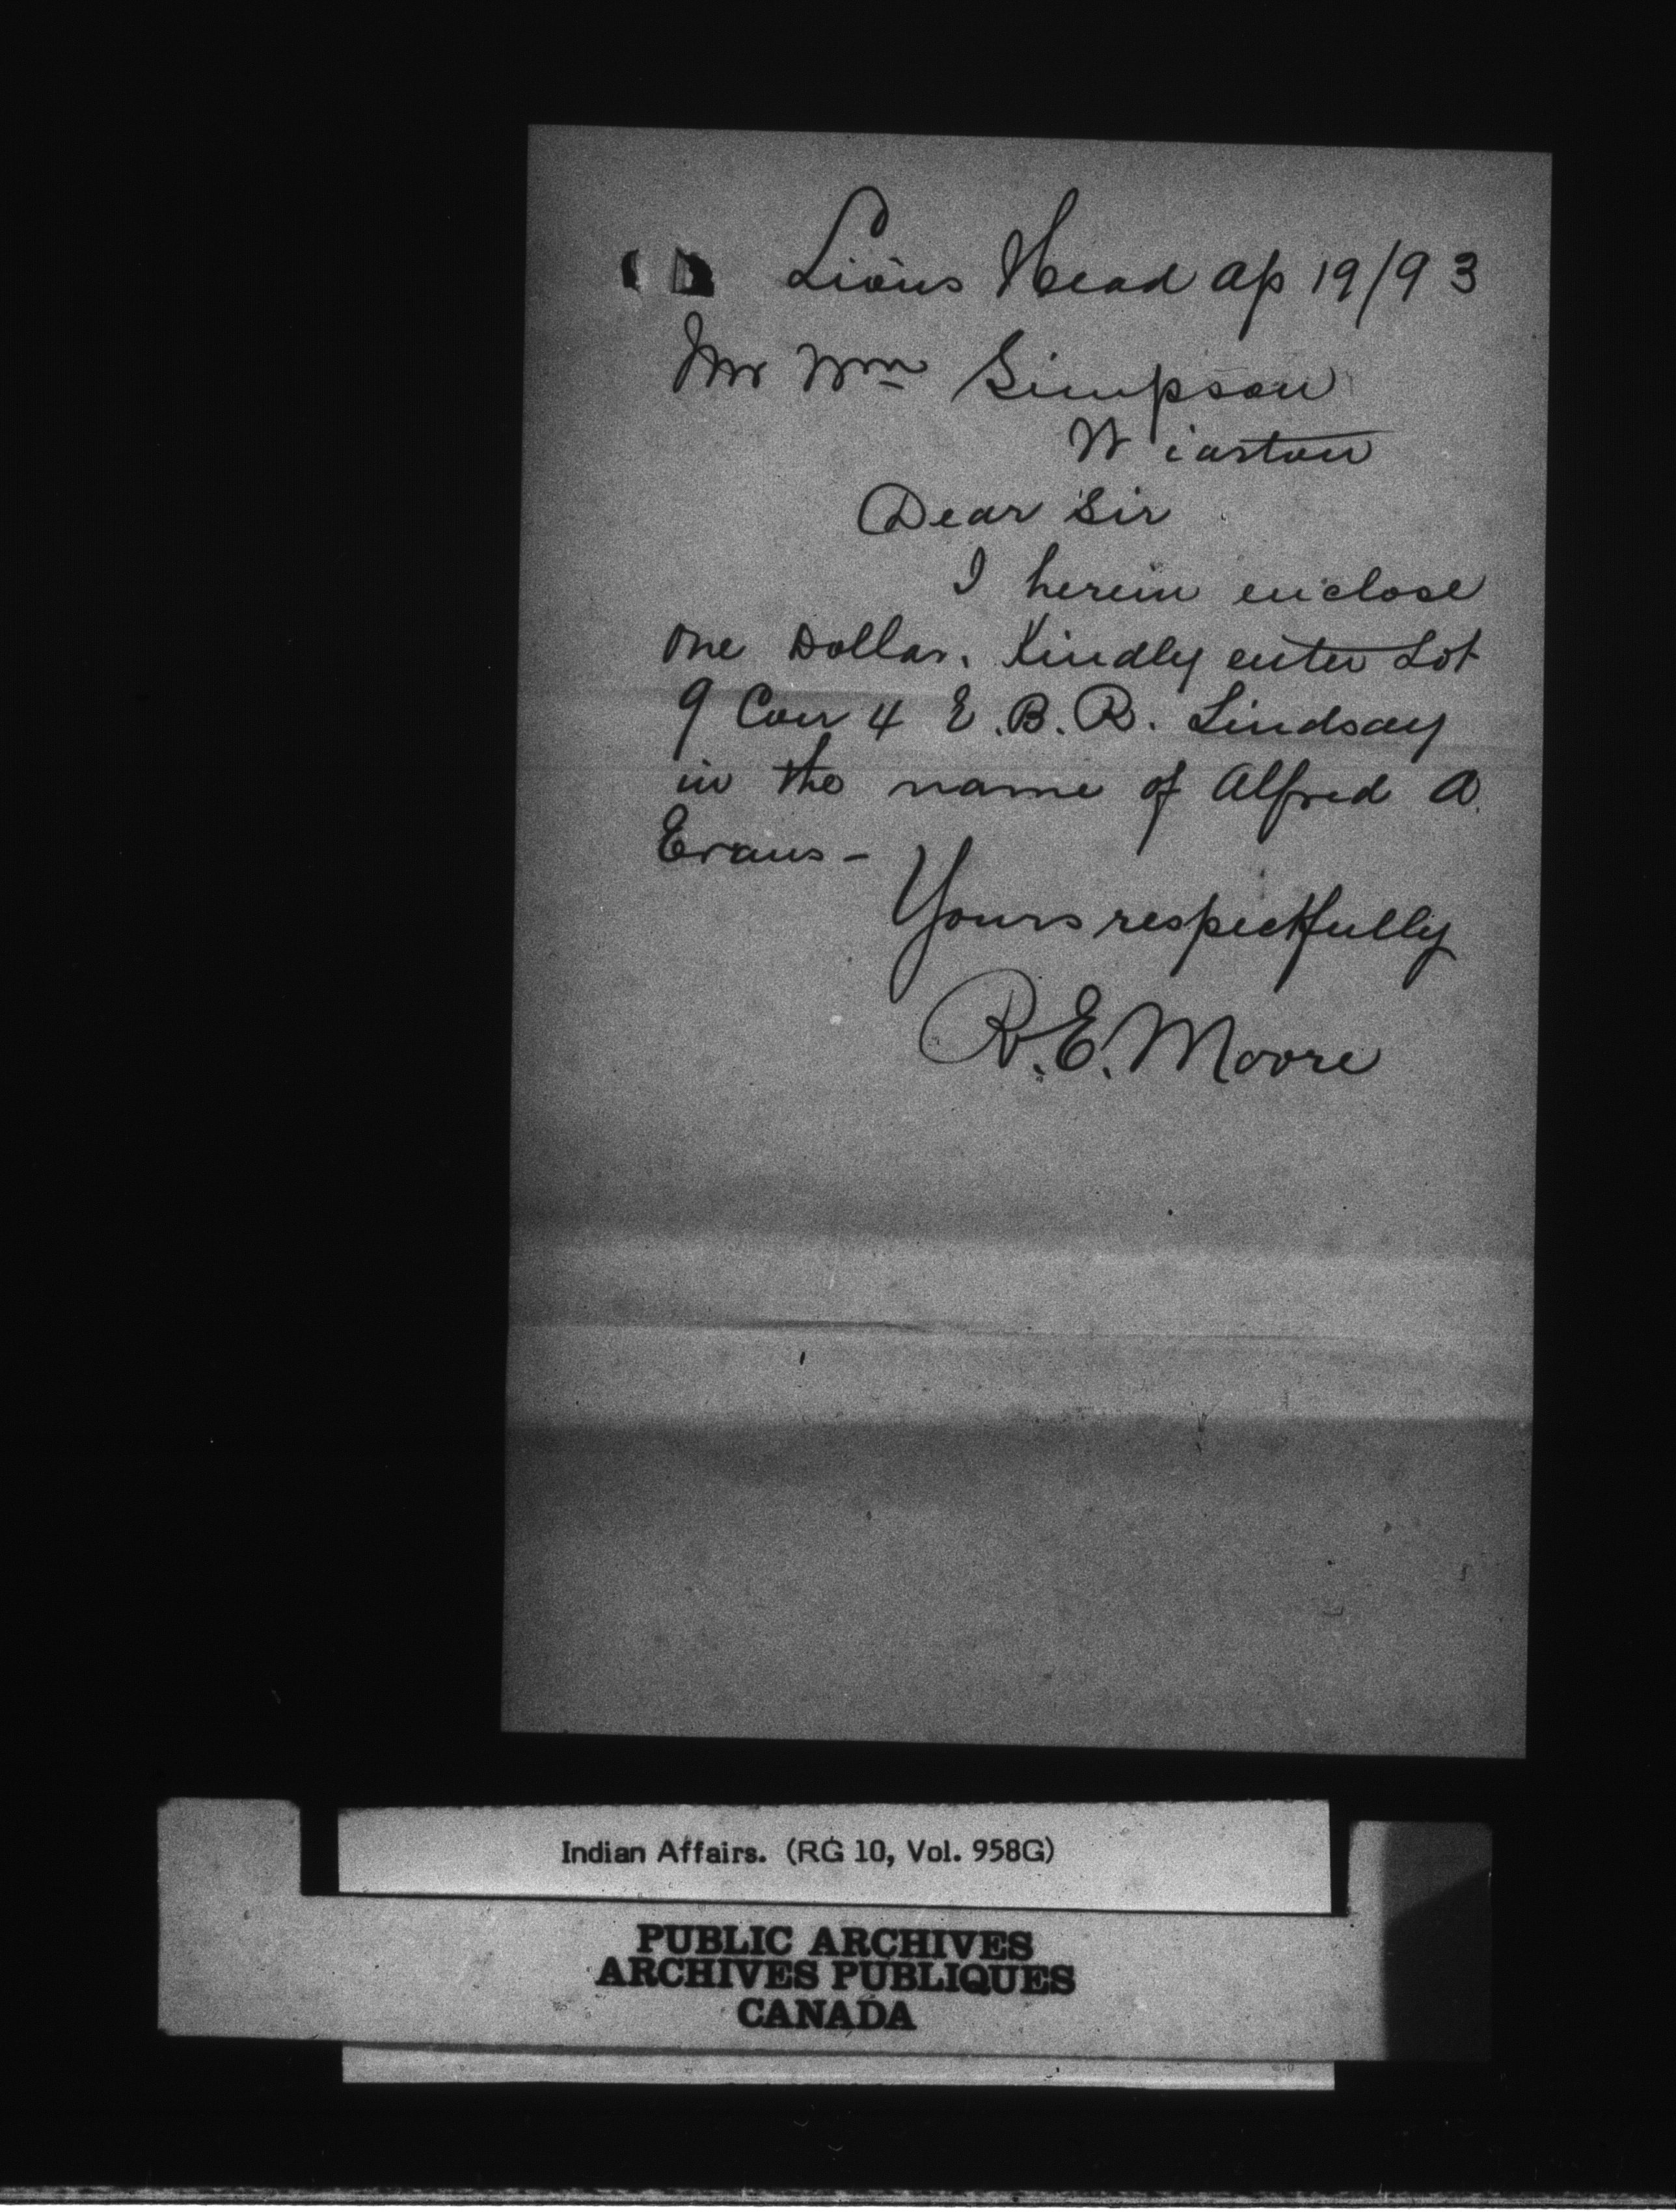 Lions Head Ap 19/93
Mr Wm Simpson
Wiarton
Dear Sir
I herein enclose
one Dollar. Kindly enter Lot
9 Con 4 E.B.R. Lindsay
in the name of Alfred A.
Evans -
Yours respectfully
R.E. Moore
Indian Affairs. (RG 10, Vol. 958G)
PUBLIC ARCHIVES
ARCHIVES PUBLIQUES
CANADA